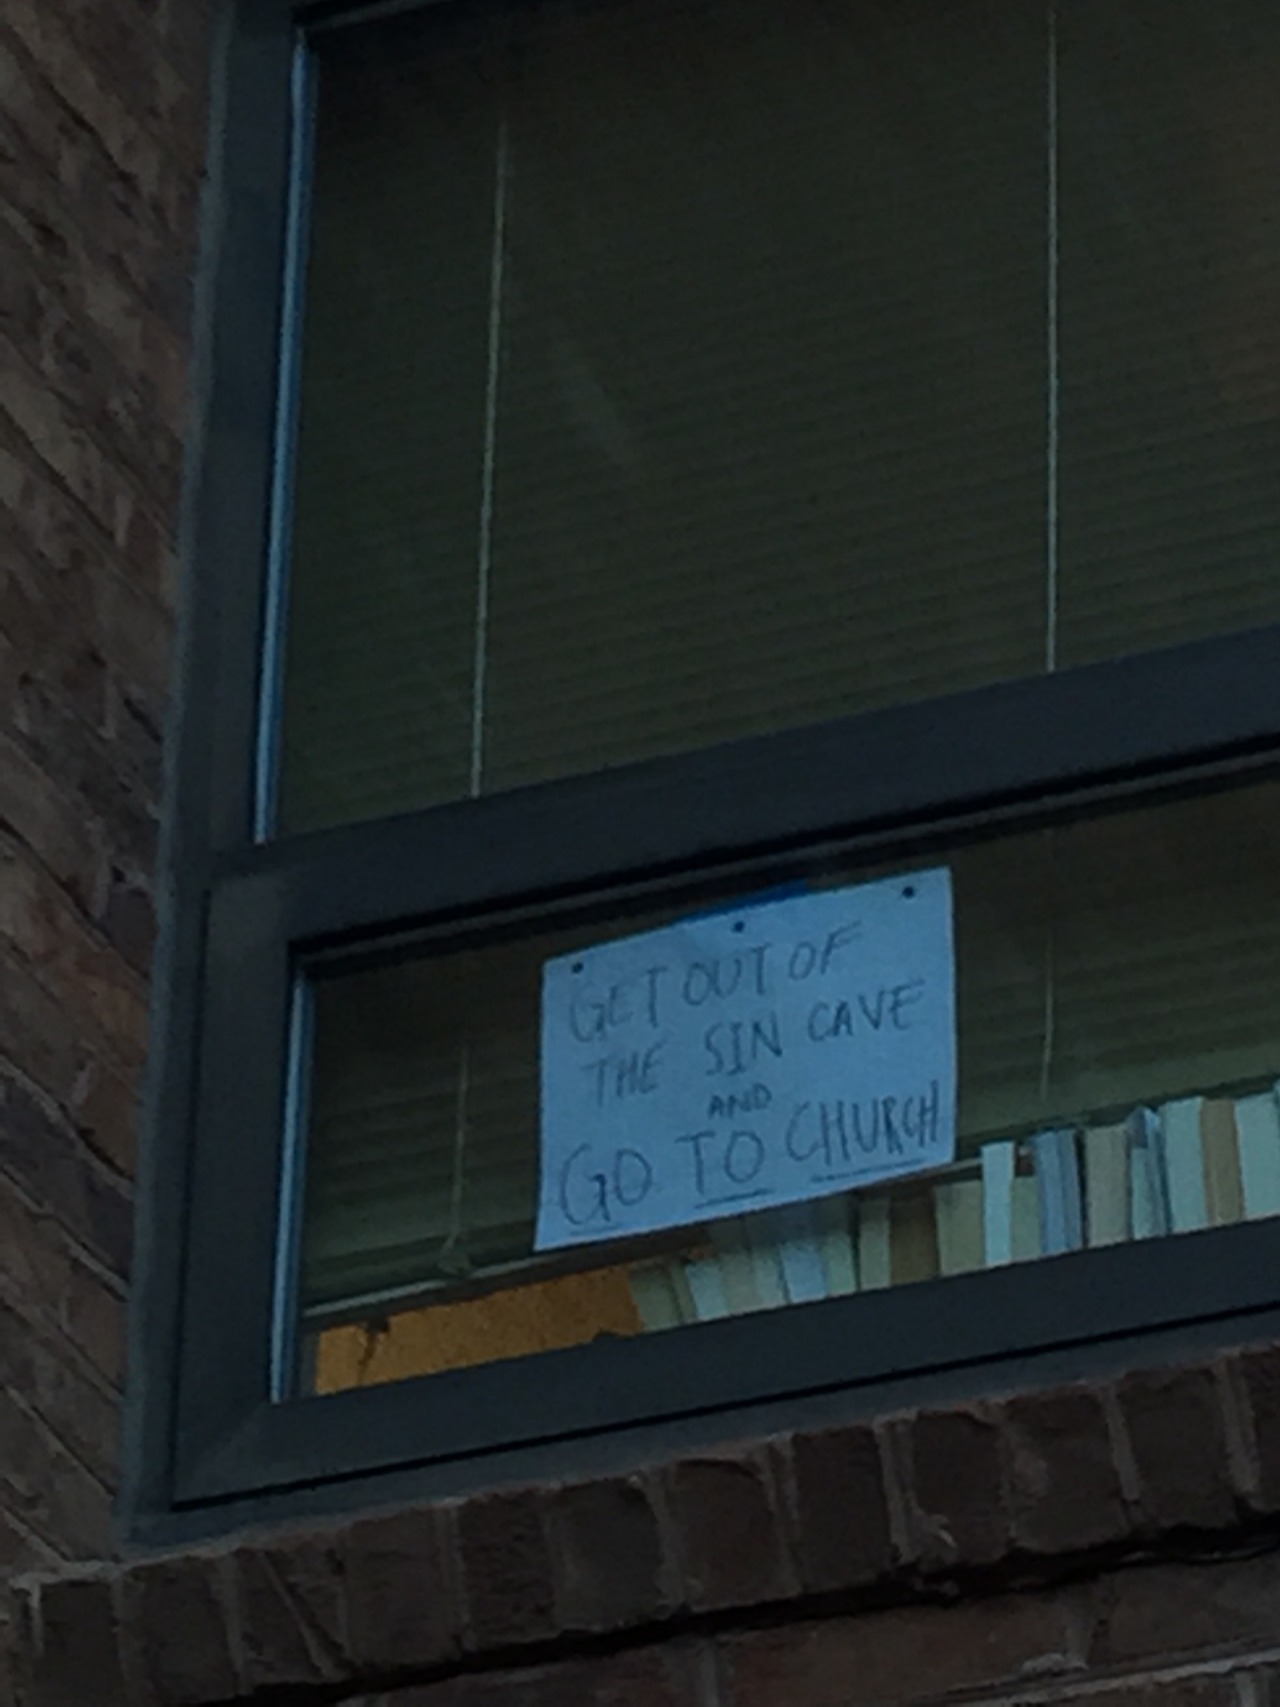 GET OUT OF
THE SIN CAVE
AND
GO TO CHURCH